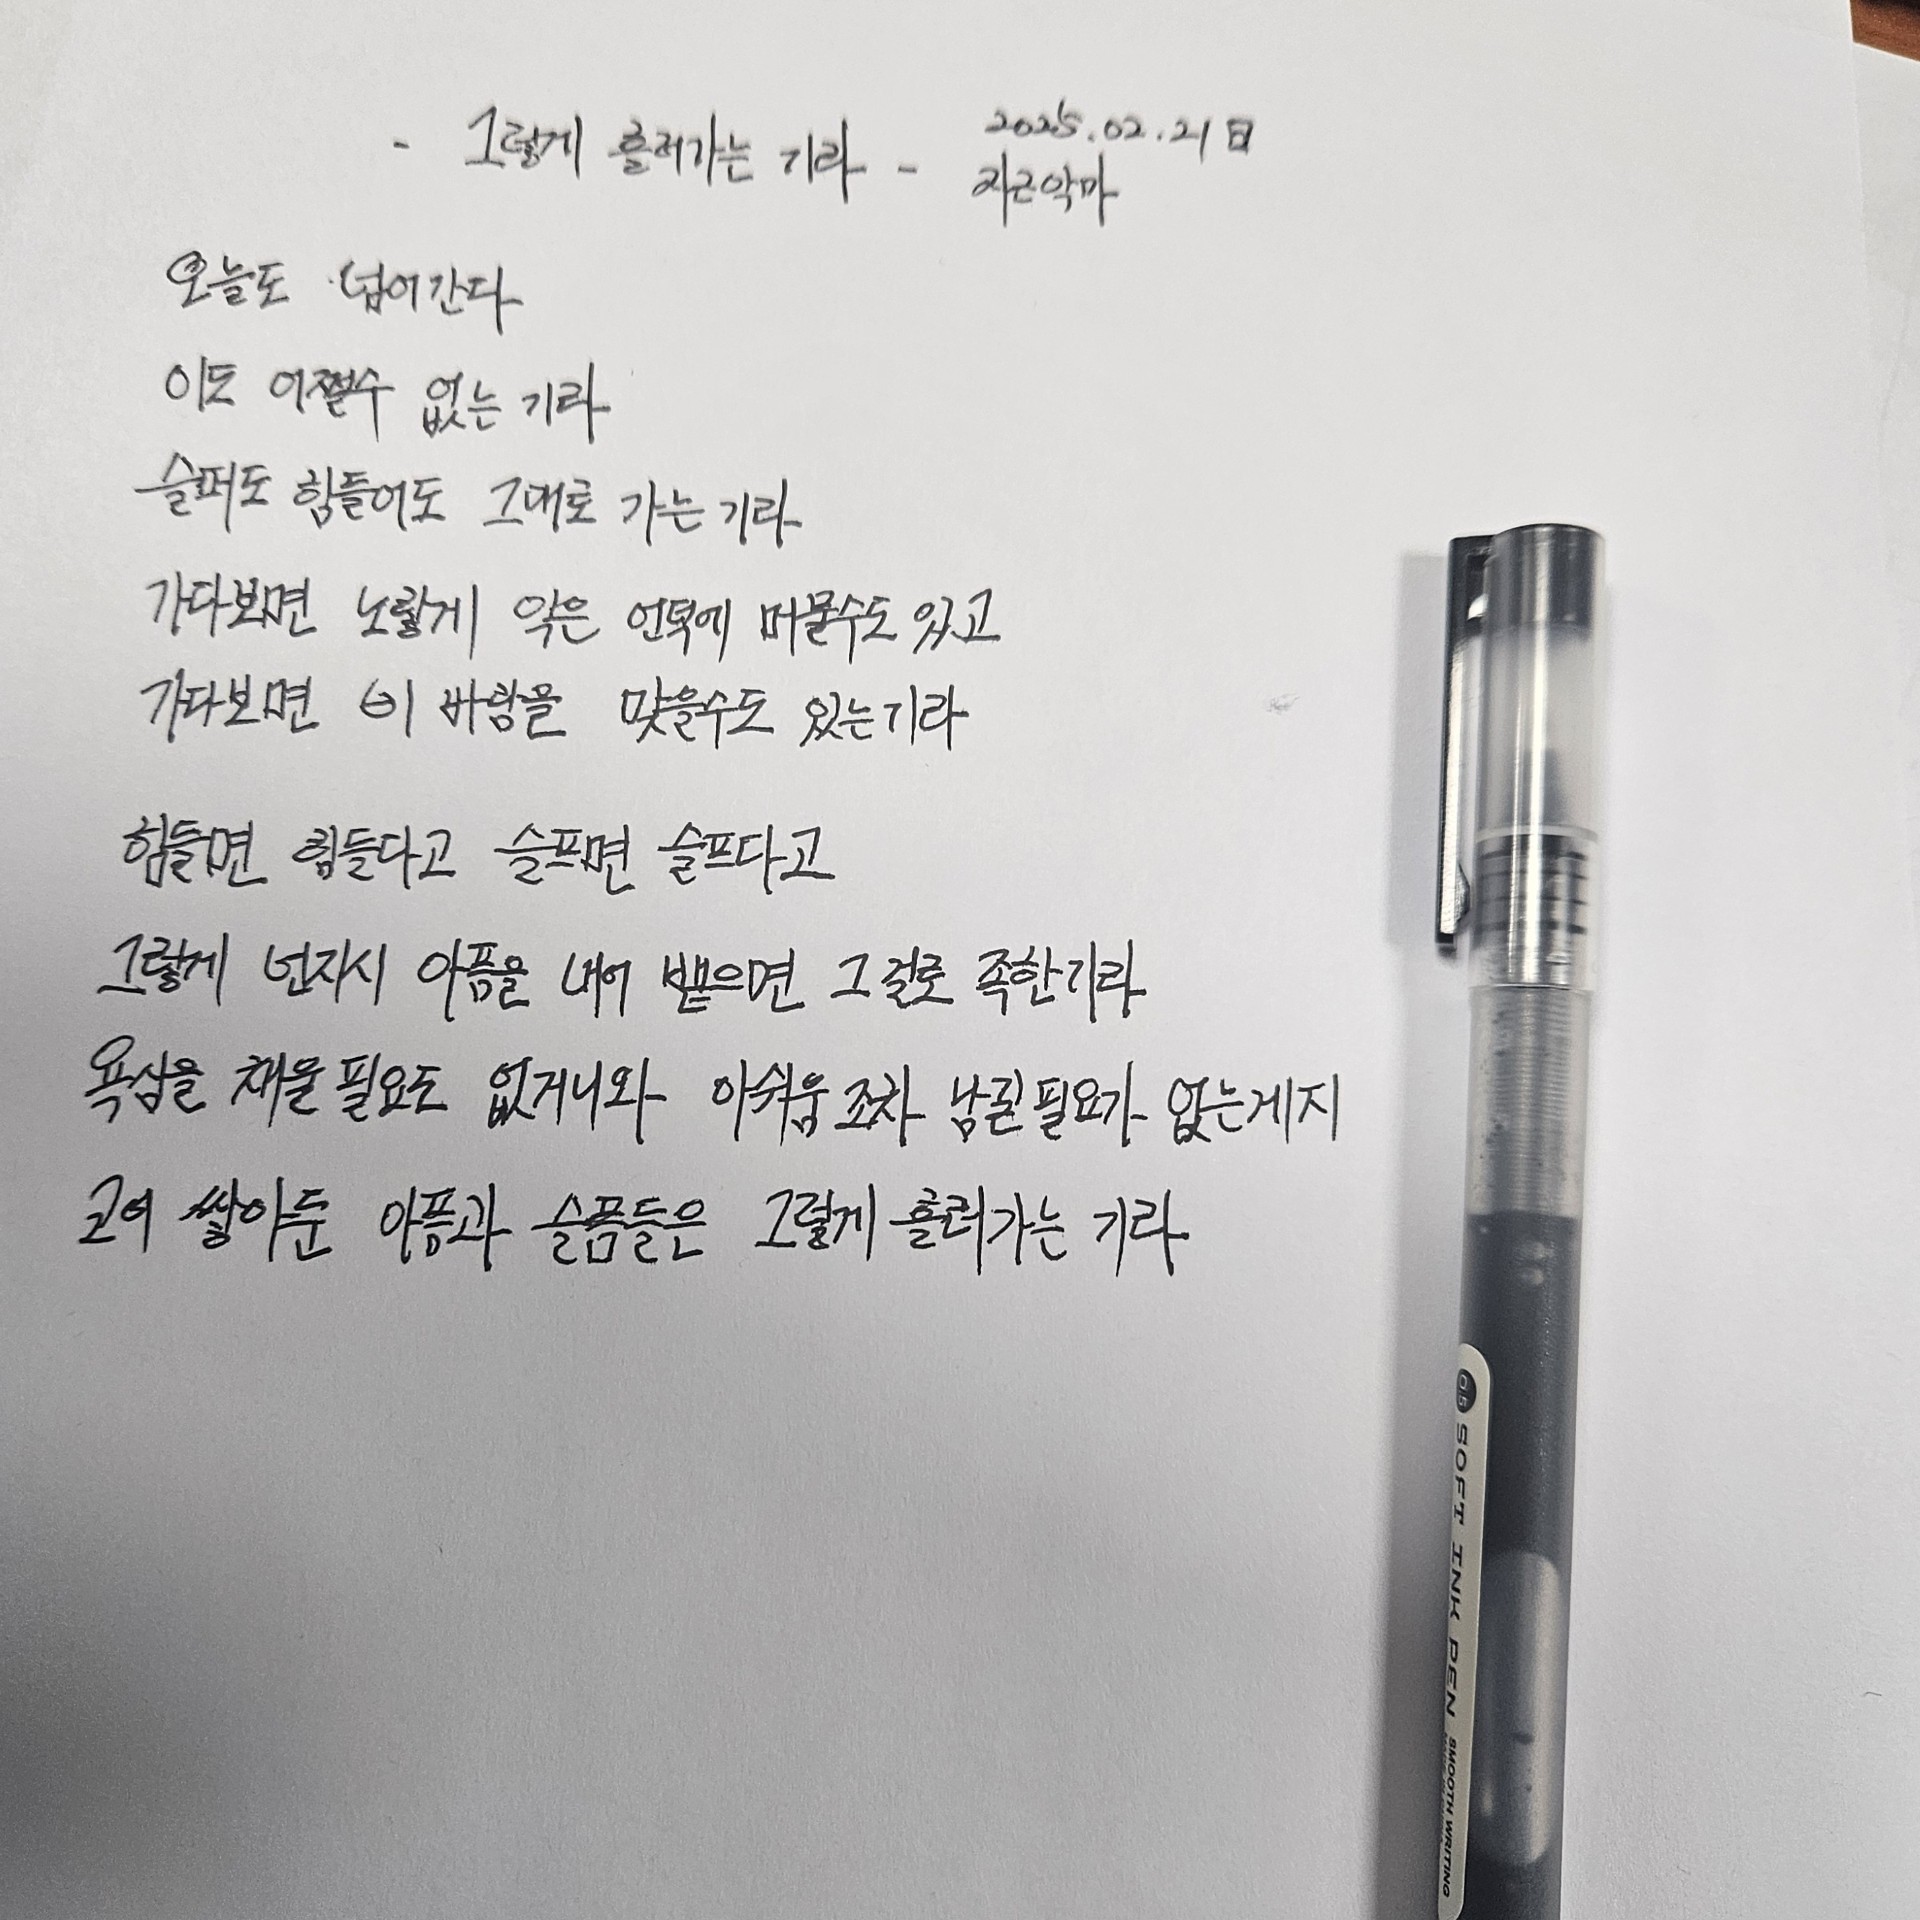 - 그렇게 흘러가는 기라 -
2025.02.21日
자근악마
오늘도 넘어간다
이도 어쩔수 없는 기라
슬퍼도 힘들어도 그대로 가는 기라
가다보면 노랗게 익은 언덕에 머물수도 있고
가다보면 이 바람을 맞을수도 있는기라
힘들면 힘들다고 슬프면 슬프다고
그렇게 넌지시 아픔을 내어 뱉으면 그걸로 족한기라
욕심을 채울 필요도 없거니와 아쉬움 조차 남길 필요가 없는게지
고여 쌓아둔 아픔과 슬픔들은 그렇게 흘러가는 기라
0.5 SOFT INK PEN SMOOTH WRITING